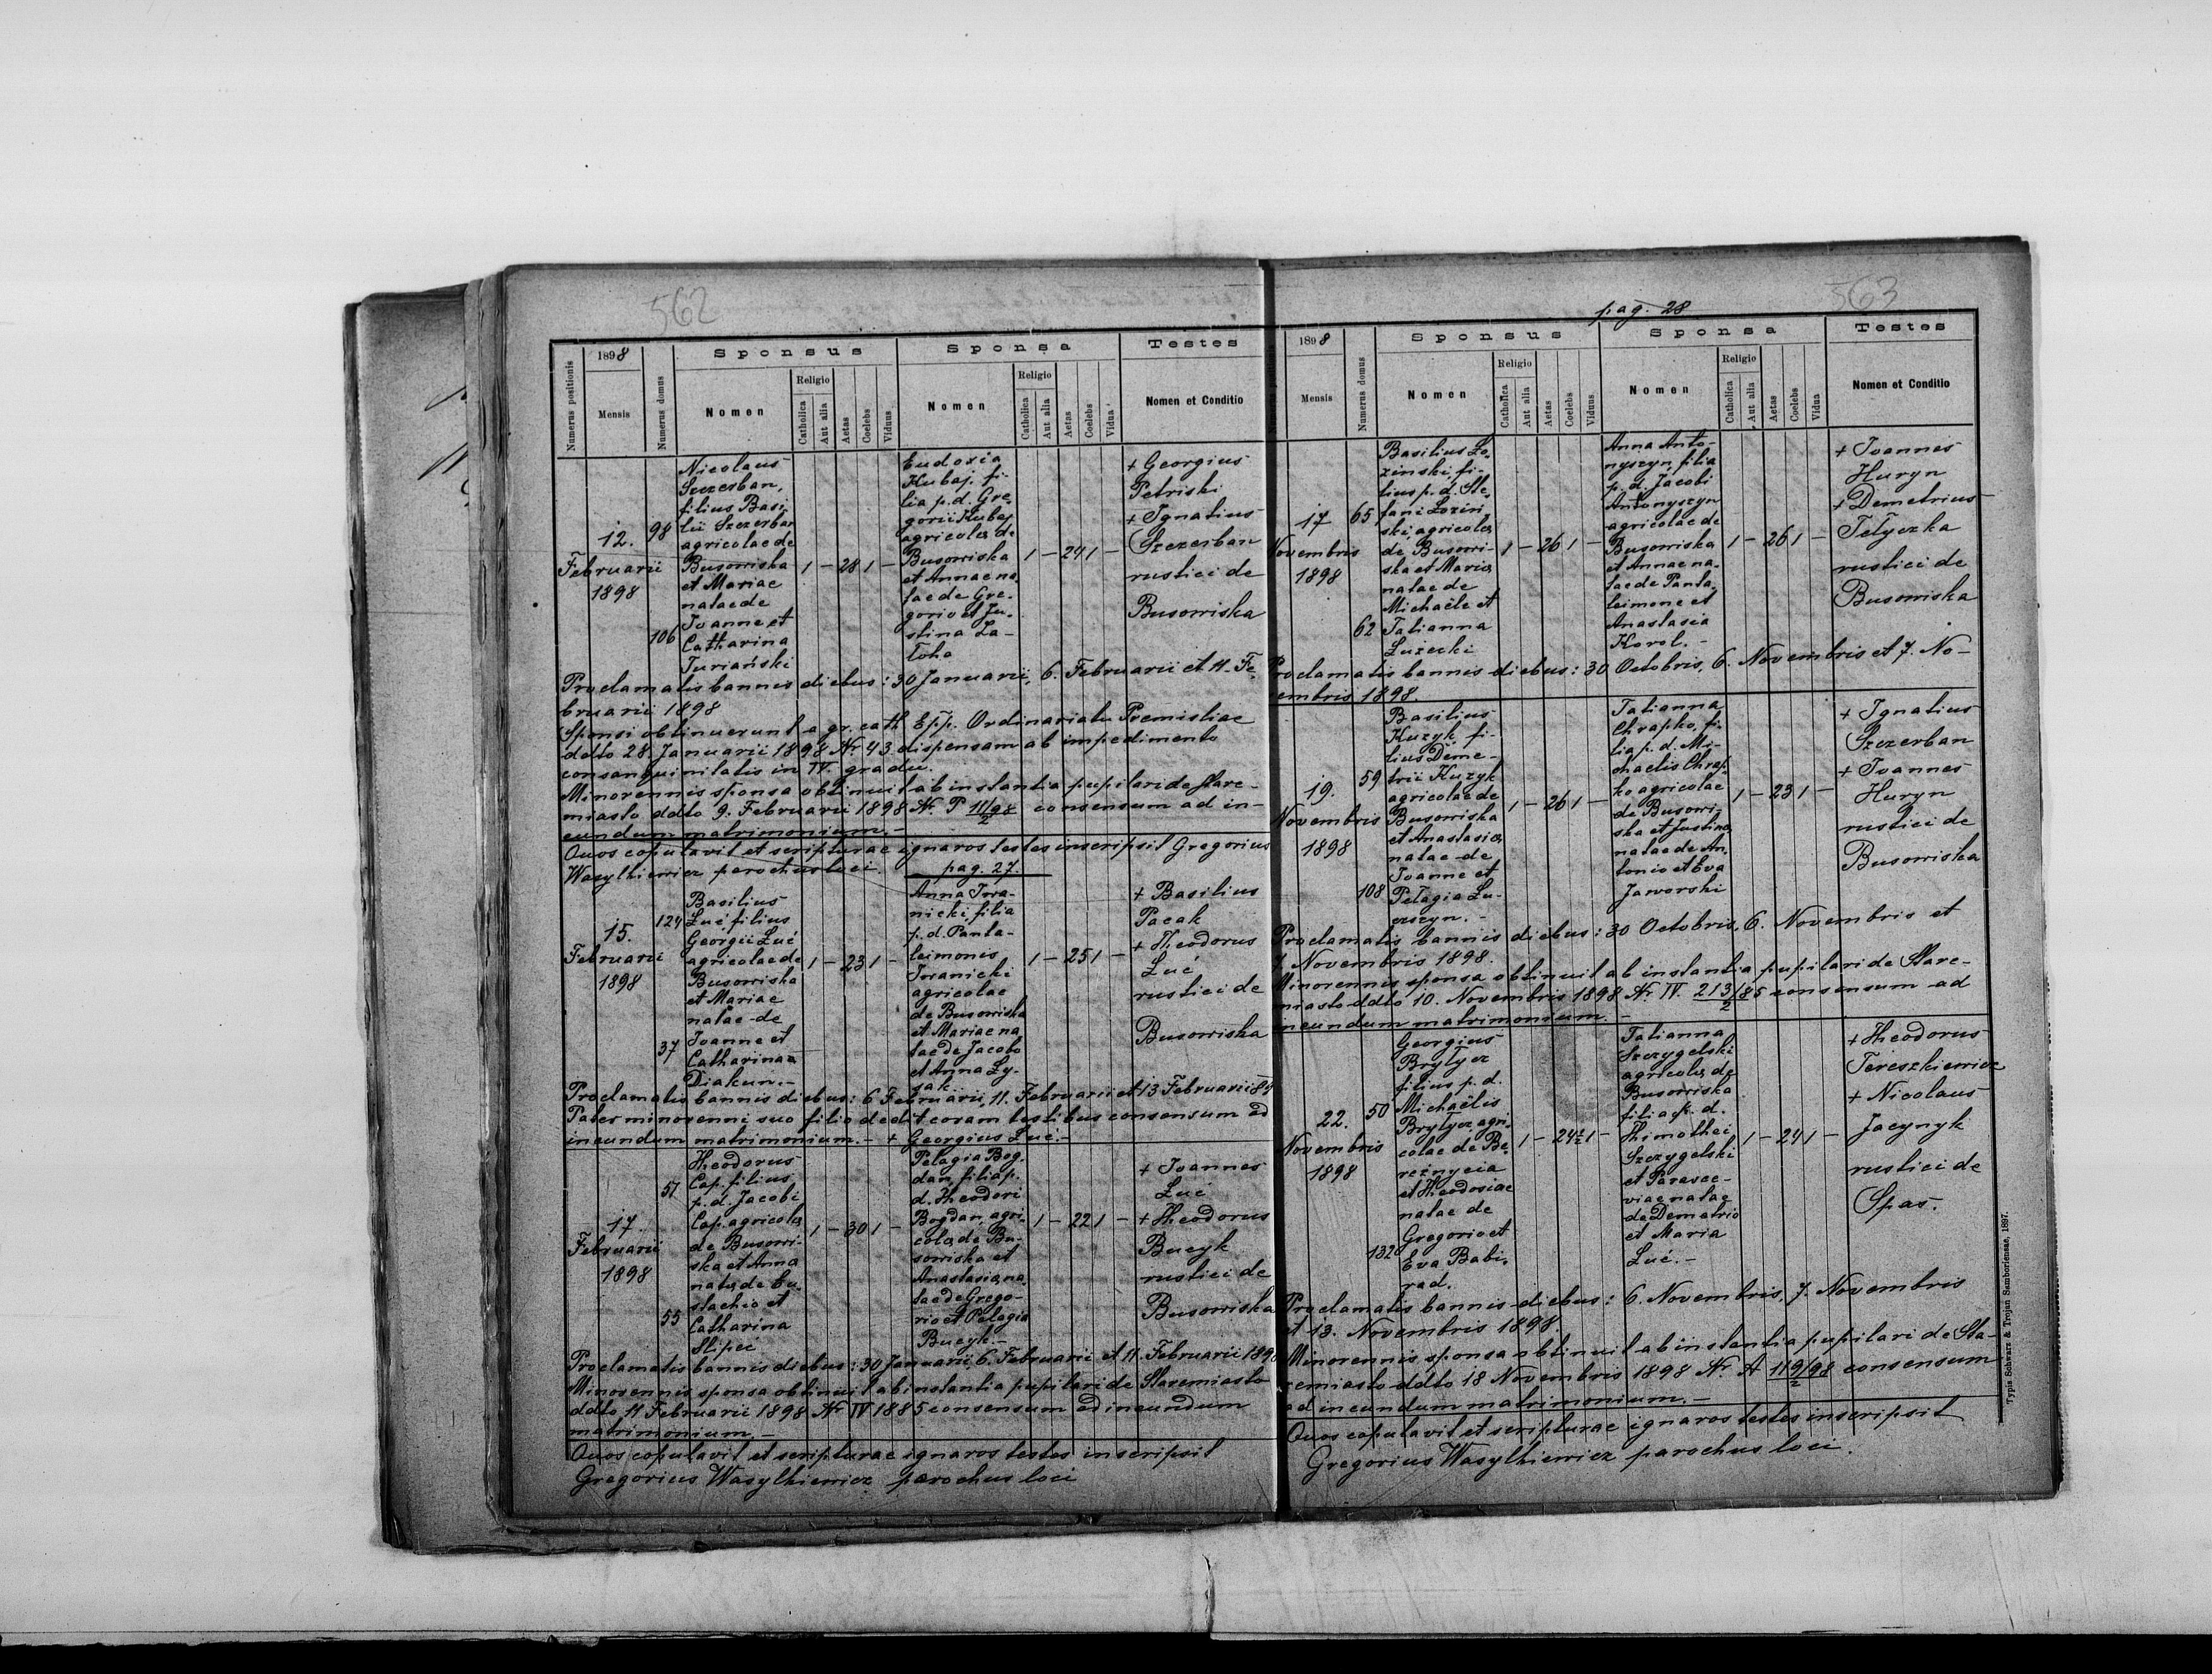 562
1898
Sponsus
Sponsa
Testes
Numerus positionis
Mensis
Numerus domus
Nomen
Religio
Catholica
Aut alia
Aetas
Coelebs
Viduus
Nomen
Religio
Catholica
Aut alia
Aetas
Coelebs
Vidua
Nomen et Conditio
12.
Februarii
1898
98
106
Nicolaus
Szczerban,
filius Basi-
lii Szczerban
agricolae de
Busowiska
et Mariae
natae de
Ioanne et
Catharina
Turiański
1 — 28 1 —
Eudoxia
Kubaj, fi-
lia p. d. Gre-
gorii Kubaj
agricolae de
Busowiska
et Annae na-
tae de Gre-
gorio et Ju-
stina Ła-
toha
1 — 24 1 —
+ Georgius
Petriski
+ Ignatius
Szczerban
rustici de
Busowiska
Proclamatis bannis diebus: 30 Januarii, 6. Februarii et 11. Fe-
bruarii 1898
Sponsi obtinuerunt a gr. cath. Epp. Ordinariatu Premisliae
ddto 28. Januarii 1898 Nr 43 dispensam ab impedimento
consanquinitatis in IV. gradu.
Minorennis sponsa obtinuit ab instantia pupilari de Stare-
miasto ddto 9. Februarii 1898 Nr. P 11/98 2 consensum ad in-
eundum matrimonium.-
Quos copulavit et scripturae ignaros testes inscripsit Gregorius
Wasylkiewicz parochus loci. pag. 27.
15.
Februarii
1898
124
37
Basilius
Luć, filius
Georgii Luć
agricolae de
Busowiska
et Mariae
natae de
Ioanne et
Catharina
Diakun.-
1 — 23 1 —
Anna Iwa-
nicki, filia
p. d. Panta-
leimonis
Iwanicki
agricolae
de Busowiska
et Mariae na
tae de Jacobo
et Anna Ły-
sak.
1 — 25 1 —
+ Basilius
Pacak
+ Theodorus
Luć
rustici de
Busowiska
Proclamatis bannis diebus: 6 Februarii, 11. Februarii et 13 Februarii
Pater minorenni suo filio dedit coram testibus consensum ad
ineundum matrimonium.- + Georgius Luć.-
17.
Februarii
1898
51
55
Theodorus
Cap, filius
p. d. Jacobi
Cap, agricolae
de Busowi-
ska et Anna
natae de Eu-
stachio et
Catharina
Slipci
1 — 30 1 —
Pelagia Bog-
dan, filia p.
d. Theodori
Bogdan, agri-
colae de Bu-
sowiska et
Anastasia na-
tae de Grego-
rio et Pelagia
Bucyk.-
1 — 22 1 —
+ Ioannes
Luć
+ Theodorus
Bucyk
rustici de
Busowiska
Proclamatis bannis diebus: 30 Januarii, 6. Februarii et 11. Februarii 1898
Minorennis sponsa obtinuit ab instantia pupilari de Staremiasto
ddto 11 Februarii 1898 Nr IV 1885 consensum ad ineundum
matrimonium.-
Quos copulavit et scripturae ignaros testes inscripsit
Gregorius Wasylkiewicz parochus loci
563
pag. 28
1898
Sponsus
Sponsa
Testes
Mensis
Numerus domus
Nomen
Religio
Catholica
Aut alia
Aetas
Coelebs
Viduus
Nomen
Religio
Catholica
Aut alia
Aetas
Coelebs
Vidua
Nomen et Conditio
17
Novembris
1898
65
62
Basilius Ło-
zinski, fi-
lius p. d. Ste-
fani Łozin-
ski, agricolae
de Busowi-
ska et Maria
natae de
Michaële et
Tatianna
Łużecki
1 — 26 1 —
Anna Anto-
nyszyn, filia
p. d. Jacobi
Antonyszyn
agricolae de
Busowiska
et Annae na-
tae de Panta-
leimone et
Anastasia
Korol.-
1 — 26 1 —
+ Ioannes
Huryn
+ Demetrius
Telyczka
rustici de
Busowiska
Proclamatis bannis diebus: 30 Octobris, 6. Novembris et 7. No-
vembris 1898.
19.
Novembris
1898
59
108
Basilius
Kuzyk fi-
lius Deme-
trii Kuzyk
agricolae de
Busowiska
et Anastasia
natae de
Ioanne et
Pelagia Lu-
czszyn.-
1 — 26 1 —
Tatianna
Chrapko, fi-
lia p. d. Mi-
chaelis Chrap-
ko agricolae
de Busowi-
ska et Justina
natae de An-
tonio et Eva
Jaworski
1 — 23 1 —
+ Ignatius
Szczerban
+ Ioannes
Huryn
rustici de
Busowiska
Proclamatis bannis diebus: 30 Octobris, 6. Novembris et
7. Novembris 1898.
Minorennis sponsa obtinuit ab instantia pupilari de Stare-
miasto ddto 10. Novembris 1898 Nr IV. 213/85 2 consensum ad
ineundum matrimonium.-
22.
Novembris
1898
50
132
Georgius
Brytycz
filius p. d.
Michaëlis
Brytycz agri-
colae de Be-
reżnycia
et Theodosiae
natae de
Gregorio et
Eva Babi-
rad.
1 — 24½ 1 —
Tatianna
Szczygelski
agricolae de
Busowiska
filia p. d.
Thimothei
Szczygelski
et Parasce-
viae natae
de Demetrio
et Maria
Luć.-
1 — 24 1 —
+ Theodorus
Tereszkiewicz
+ Nicolaus
Jacynyk
rustici de
Spas.
Proclamatis bannis diebus: 6. Novembris, 7. Novembris
et 13. Novembris 1898.
Minorennis sponsa obtinuit ab instantia pupilari de Sta-
remiasto ddto 18 Novembris 1898 Nr. A 119/98 2 consensum
ad ineundum matrimonium.-
Quos copulavit et scripturae ignaros testes inscripsit
Gregorius Wasylkiewicz parochus loci.
Typis Schwarz & Trojan Samboriensae, 1897.